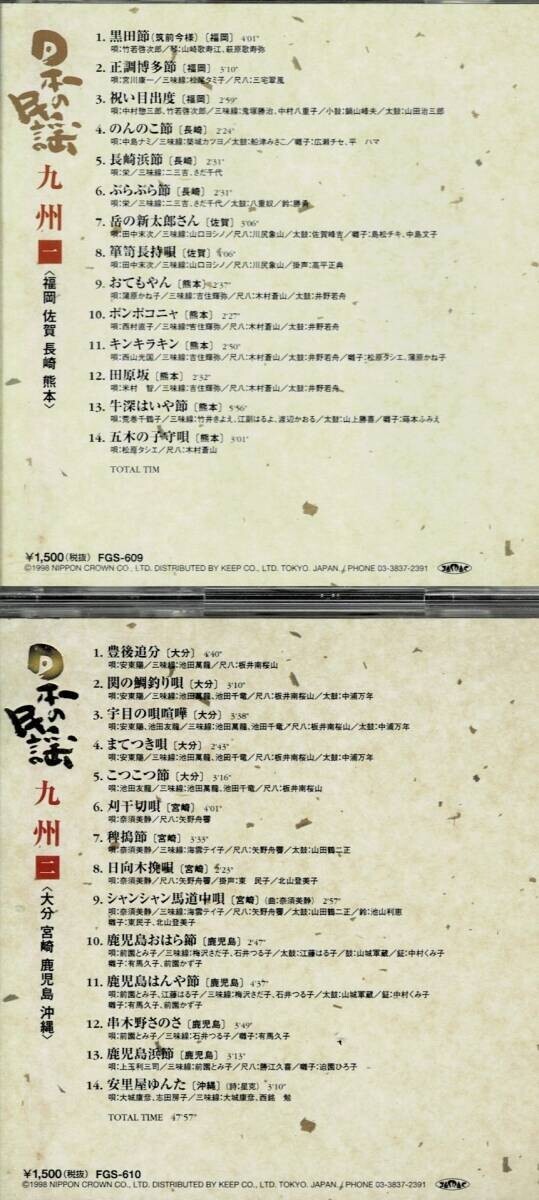 日本の民謡
九州
一
〈福岡 佐賀 長崎 熊本〉
1. 黒田節(筑前今様)〔福岡〕 4'01"
唄:竹若啓次郎/琴:山崎歌寿江、萩原歌寿弥
2. 正調博多節〔福岡〕 3'10"
唄:宮川康一/三味線:松尾タミ子/尺八:三宅軍風
3. 祝い目出度〔福岡〕 2'59"
唄:中村惣三郎、竹若啓次郎/三味線:鬼塚勝治、中村八重子/小鼓:鍋山峰夫/太鼓:山田治三郎
4. のんのこ節〔長崎〕 2'24"
唄:中島ナミ/三味線:築城カツヨ/太鼓:船津みさこ/囃子:広瀬チセ、平 ハマ
5. 長崎浜節〔長崎〕 2'31"
唄:栄/三味線:二三吉、さだ千代
6. ぶらぶら節〔長崎〕 2'31"
唄:栄/三味線:二三吉、さだ千代/太鼓:八重奴/鈴:勝勇
7. 岳の新太郎さん〔佐賀〕 3'06"
唄:田中末次/三味線:山口ヨシノ/尺八:川尻象山/太鼓:佐賀峰吉/囃子:島松チキ、中島文子
8. 箪笥長持唄〔佐賀〕 4'06"
唄:田中末次/三味線:山口ヨシノ/尺八:川尻象山/掛声:高平正典
9. おてもやん〔熊本〕 2'37"
唄:蒲原かね子/三味線:吉住輝弥/尺八:木村蒼山/太鼓:井野若舟
10. ポンポコニャ〔熊本〕 2'27"
唄:西村直子/三味線:吉住輝弥/尺八:木村蒼山/太鼓:井野若舟
11. キンキラキン〔熊本〕 2'50"
唄:西山光国/三味線:吉住輝弥/尺八:木村蒼山/太鼓:井野若舟/囃子:松原タシエ、蒲原かね子
12. 田原坂〔熊本〕 2'32"
唄:米村 智/三味線:吉住輝弥/尺八:木村蒼山/太鼓:井野若舟
13. 牛深はいや節〔熊本〕 5'56"
唄:荒巻千鶴子/三味線:竹井きよえ、江副はるよ、渡辺かおる/太鼓:山上勝喜/囃子:藤本ふみえ
14. 五木の子守唄〔熊本〕 3'01"
唄:松原タシエ/尺八:木村蒼山
TOTAL TIM
¥1,500(税抜) FGS-609
©1998 NIPPON CROWN CO., LTD. DISTRIBUTED BY KEEP CO., LTD. TOKYO. JAPAN. PHONE 03-3837-2391
JASRAC
日本の民謡
九州
二
〈大分 宮崎 鹿児島 沖縄〉
1. 豊後追分〔大分〕 4'40"
唄:安東陽/三味線:池田萬龍/尺八:板井南桜山
2. 関の鯛釣り唄〔大分〕 3'10"
唄:安東陽/三味線:池田萬龍、池田千竜/尺八:板井南桜山/太鼓:中浦万年
3. 宇目の唄喧嘩〔大分〕 3'38"
唄:安東陽、池田友龍/三味線:池田萬龍、池田千竜/尺八:板井南桜山/太鼓:中浦万年
4. まてつき唄〔大分〕 2'43"
唄:安東陽/三味線:池田萬龍、池田千竜/尺八:板井南桜山/太鼓:中浦万年
5. こつこつ節〔大分〕 3'16"
唄:池田友龍/三味線:池田萬龍、池田千竜/尺八:板井南桜山
6. 刈干切唄〔宮崎〕 4'01"
唄:奈須美静/尺八:矢野舟響
7. 稗搗節〔宮崎〕 3'33"
唄:奈須美静/三味線:海雲テイ子/尺八:矢野舟響/太鼓:山田鶴二正
8. 日向木挽唄〔宮崎〕 2'23"
唄:奈須美静/尺八:矢野舟響/掛声:東 民子/北山登美子
9. シャンシャン馬道中唄〔宮崎〕(曲:奈須美静) 2'57"
唄:奈須美静/三味線:海雲テイ子/尺八:矢野舟響/太鼓:山田鶴二正/鈴:池山利恵
囃子:東民子、北山登美子
10. 鹿児島おはら節〔鹿児島〕 2'47"
唄:前園とみ子/三味線:梅沢さだ子、石井つる子/太鼓:江藤はる子/鼓:山城軍蔵/鉦:中村くみ子
囃子:有馬久子、前園かず子
11. 鹿児島はんや節〔鹿児島〕 4'37"
唄:前園とみ子、江藤はる子/三味線:梅沢さだ子、石井つる子/太鼓:山城軍蔵/鉦:中村くみ子
囃子:有馬久子、前園かず子
12. 串木野さのさ〔鹿児島〕 3'49"
唄:前園とみ子/三味線:石井つる子/囃子:有馬久子
13. 鹿児島浜節〔鹿児島〕 3'13"
唄:上玉利三司/三味線:前園とみ子/尺八:勝江久喜/囃子:迫園ひろ子
14. 安里屋ゆんた〔沖縄〕(詩:星克) 3'10"
唄:大城康彦、志田房子/三味線:大城康彦、西銘 勉
TOTAL TIME 47'57"
¥1,500(税抜) FGS-610
©1998 NIPPON CROWN CO., LTD. DISTRIBUTED BY KEEP CO., LTD. TOKYO. JAPAN. PHONE 03-3837-2391
JASRAC